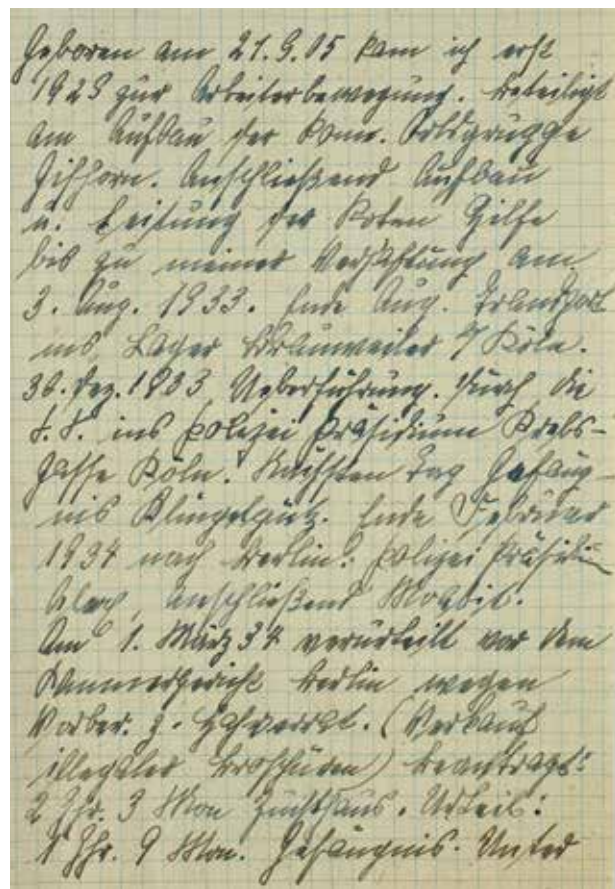 Geboren am 21.9.05 kam ich erst
1928 zur Arbeiterbewegung. Beteiligt
am Aufbau der Komm. Ortsgruppe
Anschließend Aufbau
u. Leitung der Roten Hilfe
bis zu meiner Verhaftung am
3. Aug. 1933. Ende Aug. Transport
ins Lager Brauweiler b/ Köln.
30. Dez. 1933 Ueberführung durch die
S.S. ins Polizei Präsidium Krebs-
gasse Köln. Nächsten Tag Gefäng-
nis Klingelpütz. Ende Februar
1934 nach Berlin: Polizei Präsidium
Alex, anschließend Moabit.
Am 1. März 34 verurteilt vor dem
Kammergericht Berlin wegen
Vorber. z. Hochverrat. (Verkauf
illegaler Broschüren) beantragt:
2 Jhr. 3 Mon Zuchthaus. Urteil:
1 Jhr. 9 Mon. Gefängnis. Unter